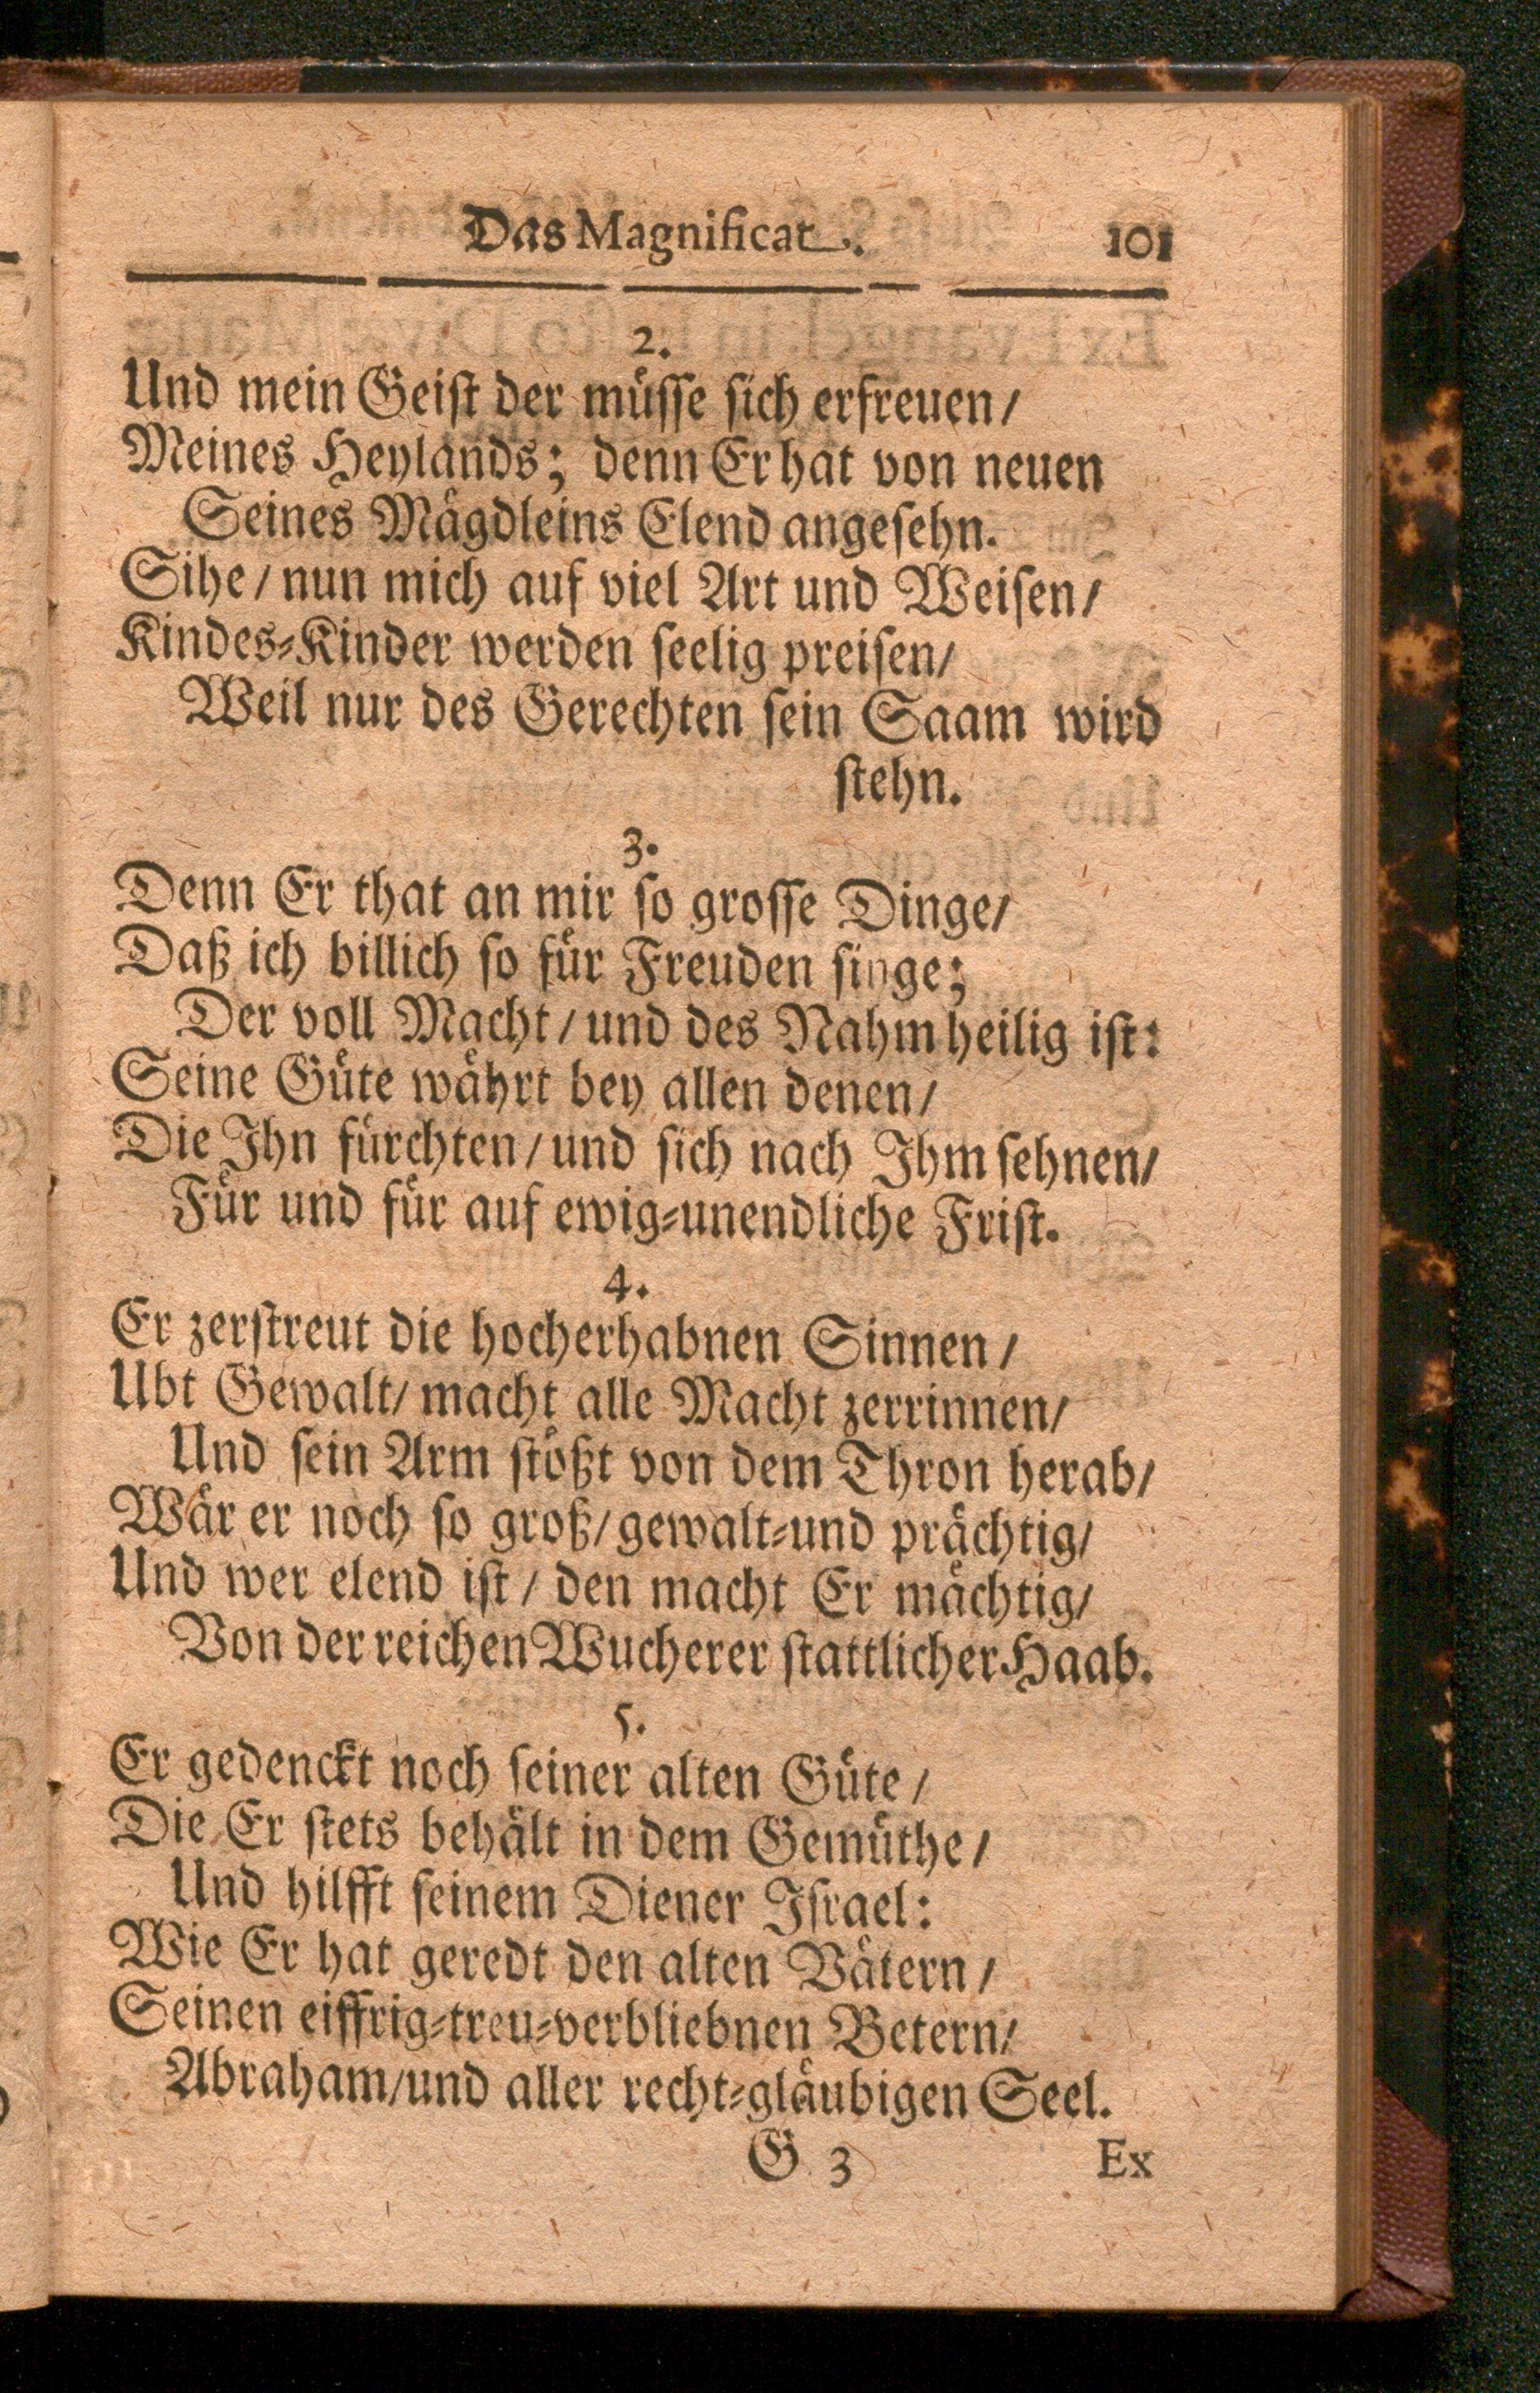 Das Magnificat. 101
2.
Und mein Geiſt der müſſe ſich erfreuen/
Meines Heylands; denn Er hat von neuen
Seines Mägdleins Elend angeſehn.
Sihe/ nun mich auf viel Art und Weiſen/
Kindes-Kinder werden ſeelig preiſen/
Weil nur des Gerechten ſein Saam wird
ſtehn.
3.
Denn Er that an mir ſo groſſe Dinge/
Daß ich billich ſo für Freuden ſinge;
Der voll Macht/ und des Nahm heilig iſt:
Seine Güte währt bey allen denen/
Die Ihn fürchten/ und ſich nach Ihm ſehnen/
Für und für auf ewig-unendliche Friſt.
4.
Er zerſtreut die hocherhabnen Sinnen/
Ubt Gewalt/ macht alle Macht zerrinnen/
Und ſein Arm ſtößt von dem Thron herab/
Wär er noch ſo groß/ gewalt-und prächtig/
Und wer elend iſt/ den macht Er mächtig/
Von der reichen Wucherer ſtattlicher Haab.
5.
Er gedenckt noch ſeiner alten Güte/
Die Er ſtets behält in dem Gemüthe/
Und hilfft ſeinem Diener Iſrael:
Wie Er hat geredt den alten Vätern/
Seinen eiffrig-treu-verbliebnen Betern/
Abraham/ und aller recht-gläubigen Seel.
G 3 Ex